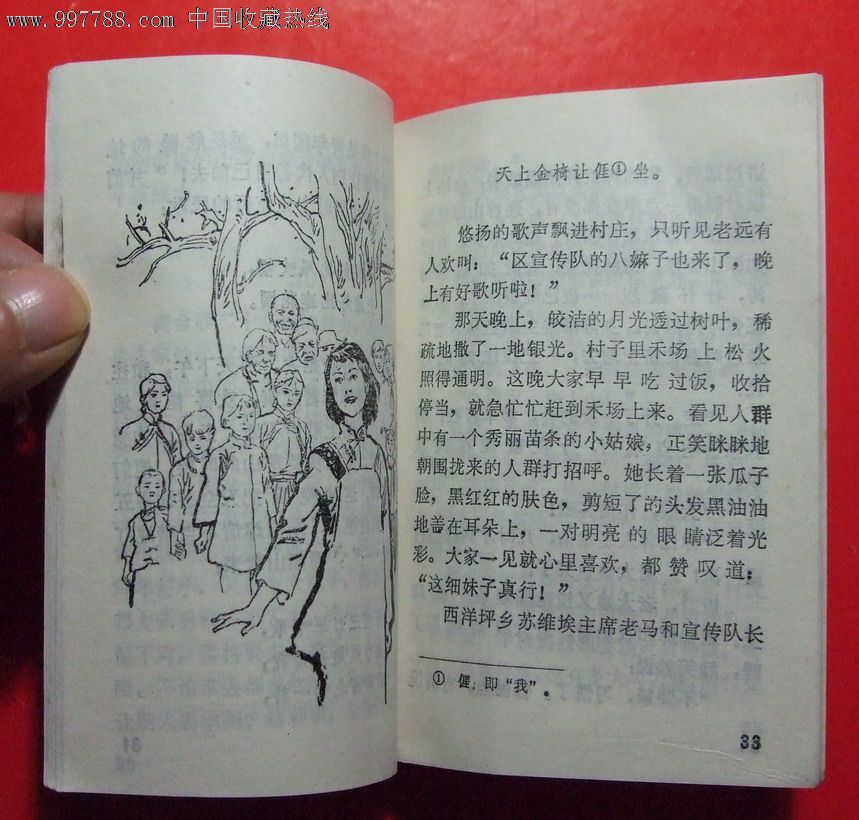 www.997788.com 中国收藏热线
天上金椅让𠊎①坐。
悠扬的歌声飘进村庄，只听见老远有
人欢叫：“区宣传队的八嫲子也来了，晚
上有好歌听啦！”
那天晚上，皎洁的月光透过树叶，稀
疏地撒了一地银光。村子里禾场上松火
照得通明。这晚大家早早吃过饭，收拾
停当，就急忙忙赶到禾场上来。看见人群
中有一个秀丽苗条的小姑娘，正笑眯眯地
朝围拢来的人群打招呼。她长着一张瓜子
脸，黑红红的肤色，剪短了的头发黑油油
地盖在耳朵上，一对明亮的眼睛泛着光
彩。大家一见就心里喜欢，都赞叹道：
“这细妹子真行！”
西洋坪乡苏维埃主席老马和宣传队长
① 𠊎：即“我”。
33